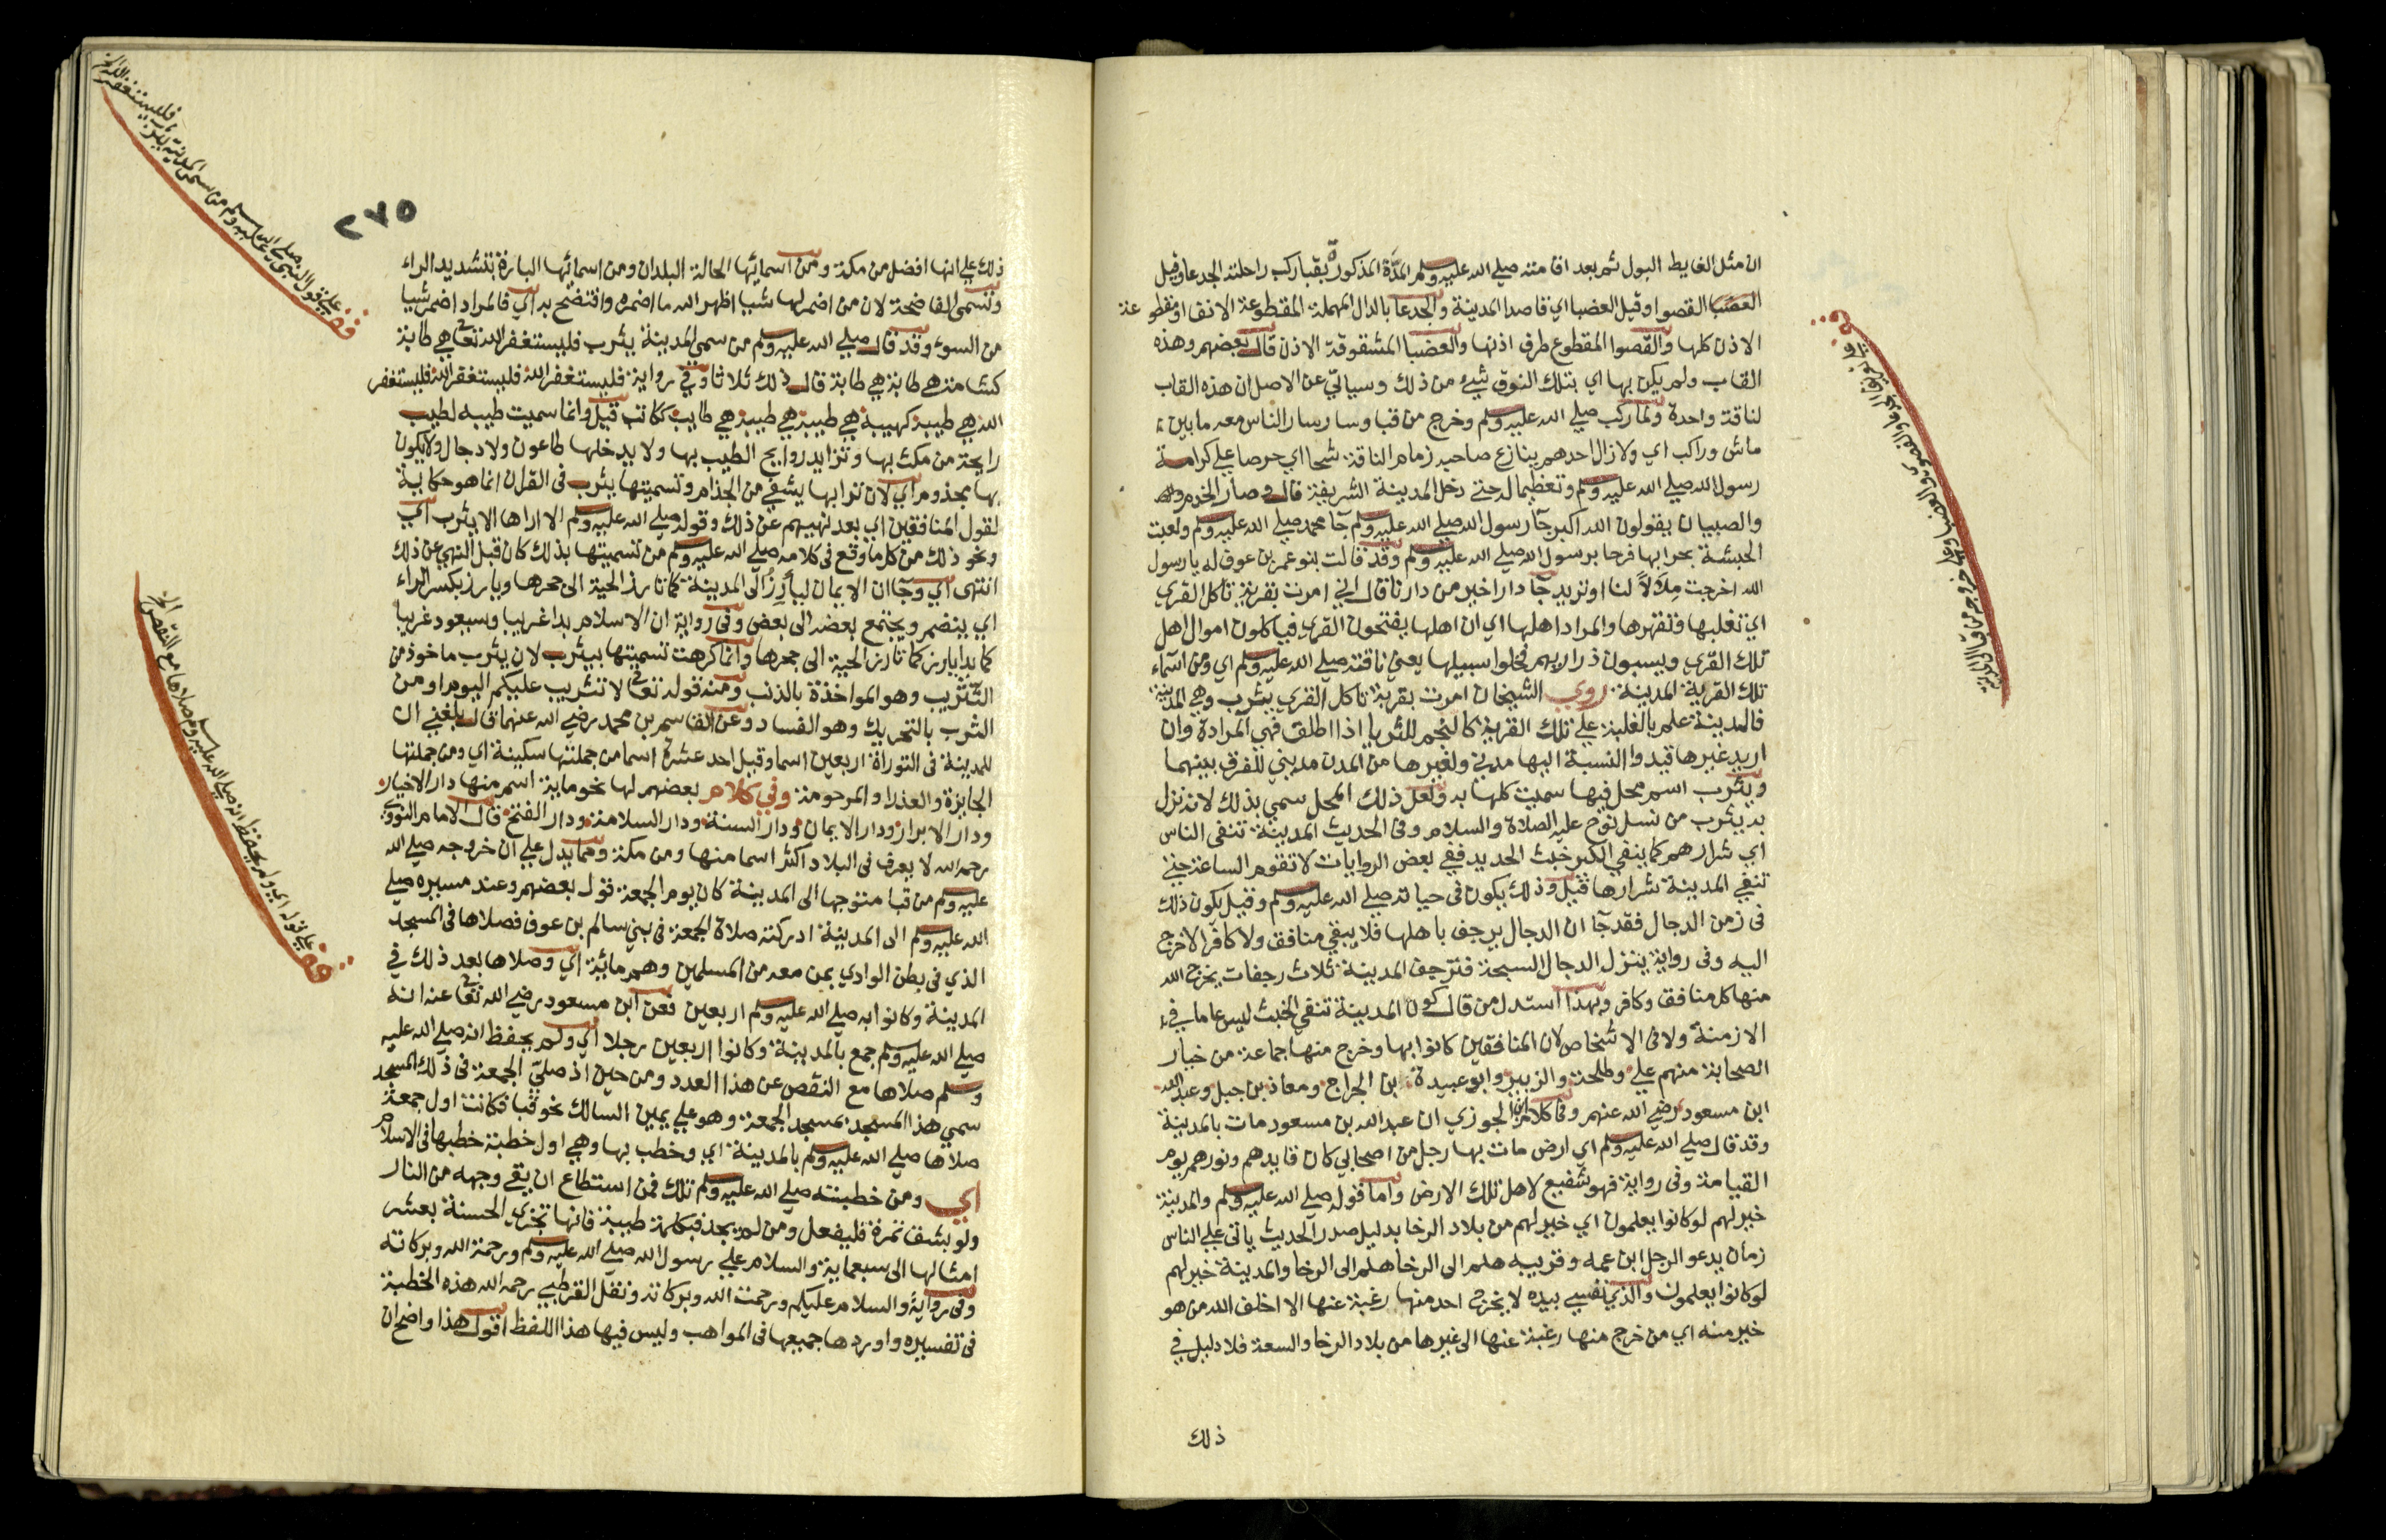 ان مثل الغايط البول ثم بعد اقامته صلى الله عليه وسلم المدة المذكورة بقبا ركب راحلته الجدعا وقيل
العضبا القصوا وقيل العضبا اي قاصدا المدينة والجدعا بالدال المهملة المقطوعة الانف او مقطوعة
الاذن كلها والقصوا المقطوع طرف اذنها والعضبا المشقوقة الاذن قال بعضهم وهذه
القاب ولم يكن بها اي بتلك النوق شيء من ذلك وسياتي عن الاصل ان هذه القاب
لناقة واحدة ولما ركب صلى الله عليه وسلم وخرج من قبا وسار سار الناس معه ما بين
ماش وراكب اي ولا زال احدهم ينازع صاحبه زمام الناقة شحا اي حرصا على كرامة
رسول الله صلى الله عليه وسلم وتعظيما له حتى دخل المدينة الشريفة قال وصار الخدم
والصبيان يقولون الله اكبر جآ رسول الله صلى الله عليه وسلم جآ محمد صلى الله عليه وسلم ولعبت
الحبشة بحرابها فرحا برسول الله صلى الله عليه وسلم وقد قالت بنو عمرو بن عوف له يا رسول
الله اخرجت ملالا لنا او تريد دارا خير من دارنا قال اني امرت بقرية تاكل القرى
اي تغلبها وتقهرها والمراد اهلها اي ان اهلها يفتحون القرى فياكلون اموال اهل
تلك القرى ويسبون ذراريهم فخلوا سبيلها يعني ناقته صلى الله عليه وسلم اي ومن اسماء
تلك القرية المدينة روى الشيخان امرت بقرية تاكل القرى يثرب وهي المدينة
فالمدينة علم بالغلبة على تلك القرية كالنجم للثريا اذا اطلق فهي المرادة وان
اريد غيرها قيد والنسبة اليها مدني ولغيرها من المدن مديني للفرق بينهما
ويثرب اسم محل فيها سميت كلها به ولعل ذلك المحل سمي بذلك لانه نزل
به يثرب من نسل نوح عليه الصلاة والسلام وفي الحديث المدينة تنفي الناس
اي شرارهم كما ينفي الكير خبث الحديد ففي بعض الروايات لا تقوم الساعة حتى
تنفي المدينة شرارها قيل وذلك يكون في حياته صلى الله عليه وسلم وقيل يكون ذلك
في زمن الدجال فقد جآ ان الدجال يرجف باهلها فلا يبقى منافق ولا كافر الا خرج
اليه وفي رواية ينزل الدجال السبخة فترجف المدينة ثلاث رجفات يخرج الله
منها كل منافق وكافر وبهذا استدل من قال كون المدينة تنفي الخبث ليس عاما في
الازمنة ولا في الاشخاص لان المنافقين كانوا بها وخرج منها جماعة من خيار
الصحابة منهم علي وطلحة والزبير وابو عبيدة بن الجراح ومعاذ بن جبل وعبد الله
ابن مسعود رضي الله عنهم وفي كلام ابن الجوزي ان عبد الله بن مسعود مات بالمدينة
وقد قال صلى الله عليه وسلم اي ارض مات بها رجل من اصحابي كان قايدهم ونورهم يوم
القيامة وفي رواية فهو شفيع لاهل تلك الارض واما قوله صلى الله عليه وسلم والمدينة
خير لهم لو كانوا يعلمون اي خير لهم من بلاد الرخا بدليل صدر الحديث ياتي على الناس
زمان يدعو الرجل ابن عمه وقريبه هلم الى الرخا هلم الى الرخا والمدينة خير لهم
لو كانوا يعلمون والذي نفسي بيده لا يخرج احد منها رغبة عنها الا اخلف الله من هو
خير منه اي من خرج منها رغبة عنها الى غيرها من بلاد الرخا والسعة فلا دليل في
ذلك
٢٧٥
ذلك على انها افضل من مكة ومن اسمائها الحالة البلدان ومن اسمائها البارة بتشديد الراء
وتسمى الفاضحة لان من اضمر لها شيا اظهر الله ما اضمره وافتضح به اي فالمراد اضمر شيا
من السوء وقد قال صلى الله عليه وسلم من سمى المدينة يثرب فليستغفر الله تعالى هي طابة
كشامة هي طابة هي طابة قال ذلك ثلاثا وفي رواية فليستغفر الله فليستغفر الله فليستغفر
الله هي طيبة كهيبة هي طيبة هي طيبة هي طايب ككاتب قيل وانما سميت طيبه لطيب
رايحة من مكث بها وتزايد روايح الطيب بها ولا يدخلها طاعون ولا دجال ولا يكون
بها مجذوم اي لان ترابها يشفي من الجذام وتسميتها يثرب في القران انما هو حكاية
لقول المنافقين اي بعد نهيهم عن ذلك وقوله صلى الله عليه وسلم الا اراها الا يثرب اي
ونحو ذلك من كل ما وقع في كلامه صلى الله عليه وسلم من تسميتها بذلك كان قبل النهي عن ذلك
انتهى اي وجآ ان الايمان ليأرز الى المدينة كما تارز الحية الى جحرها ويارز بكسر الراء
اي ينضم ويجتمع بعضه الى بعض وفي رواية ان الاسلام بدا غريبا وسيعود غريبا
كما بدا يارز كما تارز الحية الى جحرها وانما كرهت تسميتها بيثرب لان يثرب ماخوذ من
التثريب وهو المواخذة بالذنب ومنه قوله تعالى لا تثريب عليكم اليوم او من
الثرب بالتحريك وهو الفساد وعن القاسم بن محمد رضي الله عنهما قال بلغني ان
للمدينة في التوراة اربعين اسما وقيل احد عشرة اسما من جملتها سكينة اي ومن جملتها
الجابرة والعذرا والمرحومة وفي كلام بعضهم لها نحو ماية اسم منها دار الاخيار
ودار الابرار ودار الايمان ودار السنة ودار السلامة ودار الفتح قال الامام النووي
رحمه الله لا يعرف في البلاد اكثر اسما منها ومن مكة ومما يدل على ان خروجه صلى الله
عليه وسلم من قبا متوجها الى المدينة كان يوم الجمعة قول بعضهم وعند مسيره صلى
الله عليه وسلم الى المدينة ادركته صلاة الجمعة في بني سالم بن عوف فصلاها في المسجد
الذي في بطن الوادي بمن معه من المسلمين وهم مائة اي وصلاها بعد ذلك في
المدينة وكانوا به صلى الله عليه وسلم اربعين فعن ابن مسعود رضي الله تعالى عنه انه
صلى الله عليه وسلم جمع بالمدينة وكانوا اربعين رجلا اي ولم يحفظ انه صلى الله عليه
وسلم صلاها مع النقص عن هذا العدد ومن حين اذ صلى الجمعة في ذلك المسجد
سمي هذا المسجد بمسجد الجمعة وهو على يمين السالك نحو قبا فكانت اول جمعة
صلاها صلى الله عليه وسلم بالمدينة اي وخطب بها وهي اول خطبة خطبها في الاسلام
اي ومن خطبته صلى الله عليه وسلم تلك فمن استطاع ان يقي وجهه من النار
ولو بشق تمرة فليفعل ومن لم يجد فبكلمة طيبة فانها تجزى الحسنة بعشر
امثالها الى سبعماية والسلام على رسول الله صلى الله عليه وسلم ورحمة الله وبركاته
وفي رواية والسلام عليكم ورحمت الله وبركاته ونقل القرطبي رحمه الله هذه الخطبة
في تفسيره واوردها جميعها في المواهب وليس فيها هذا اللفظ اقول هذا واضح ان
قف على قول النبي صلى الله عليه وسلم من سمى المدينة يثرب فليستغفر الله
قف على قوله اي ولم يحفظ انه صلى الله عليه وسلم صلاها مع النقص